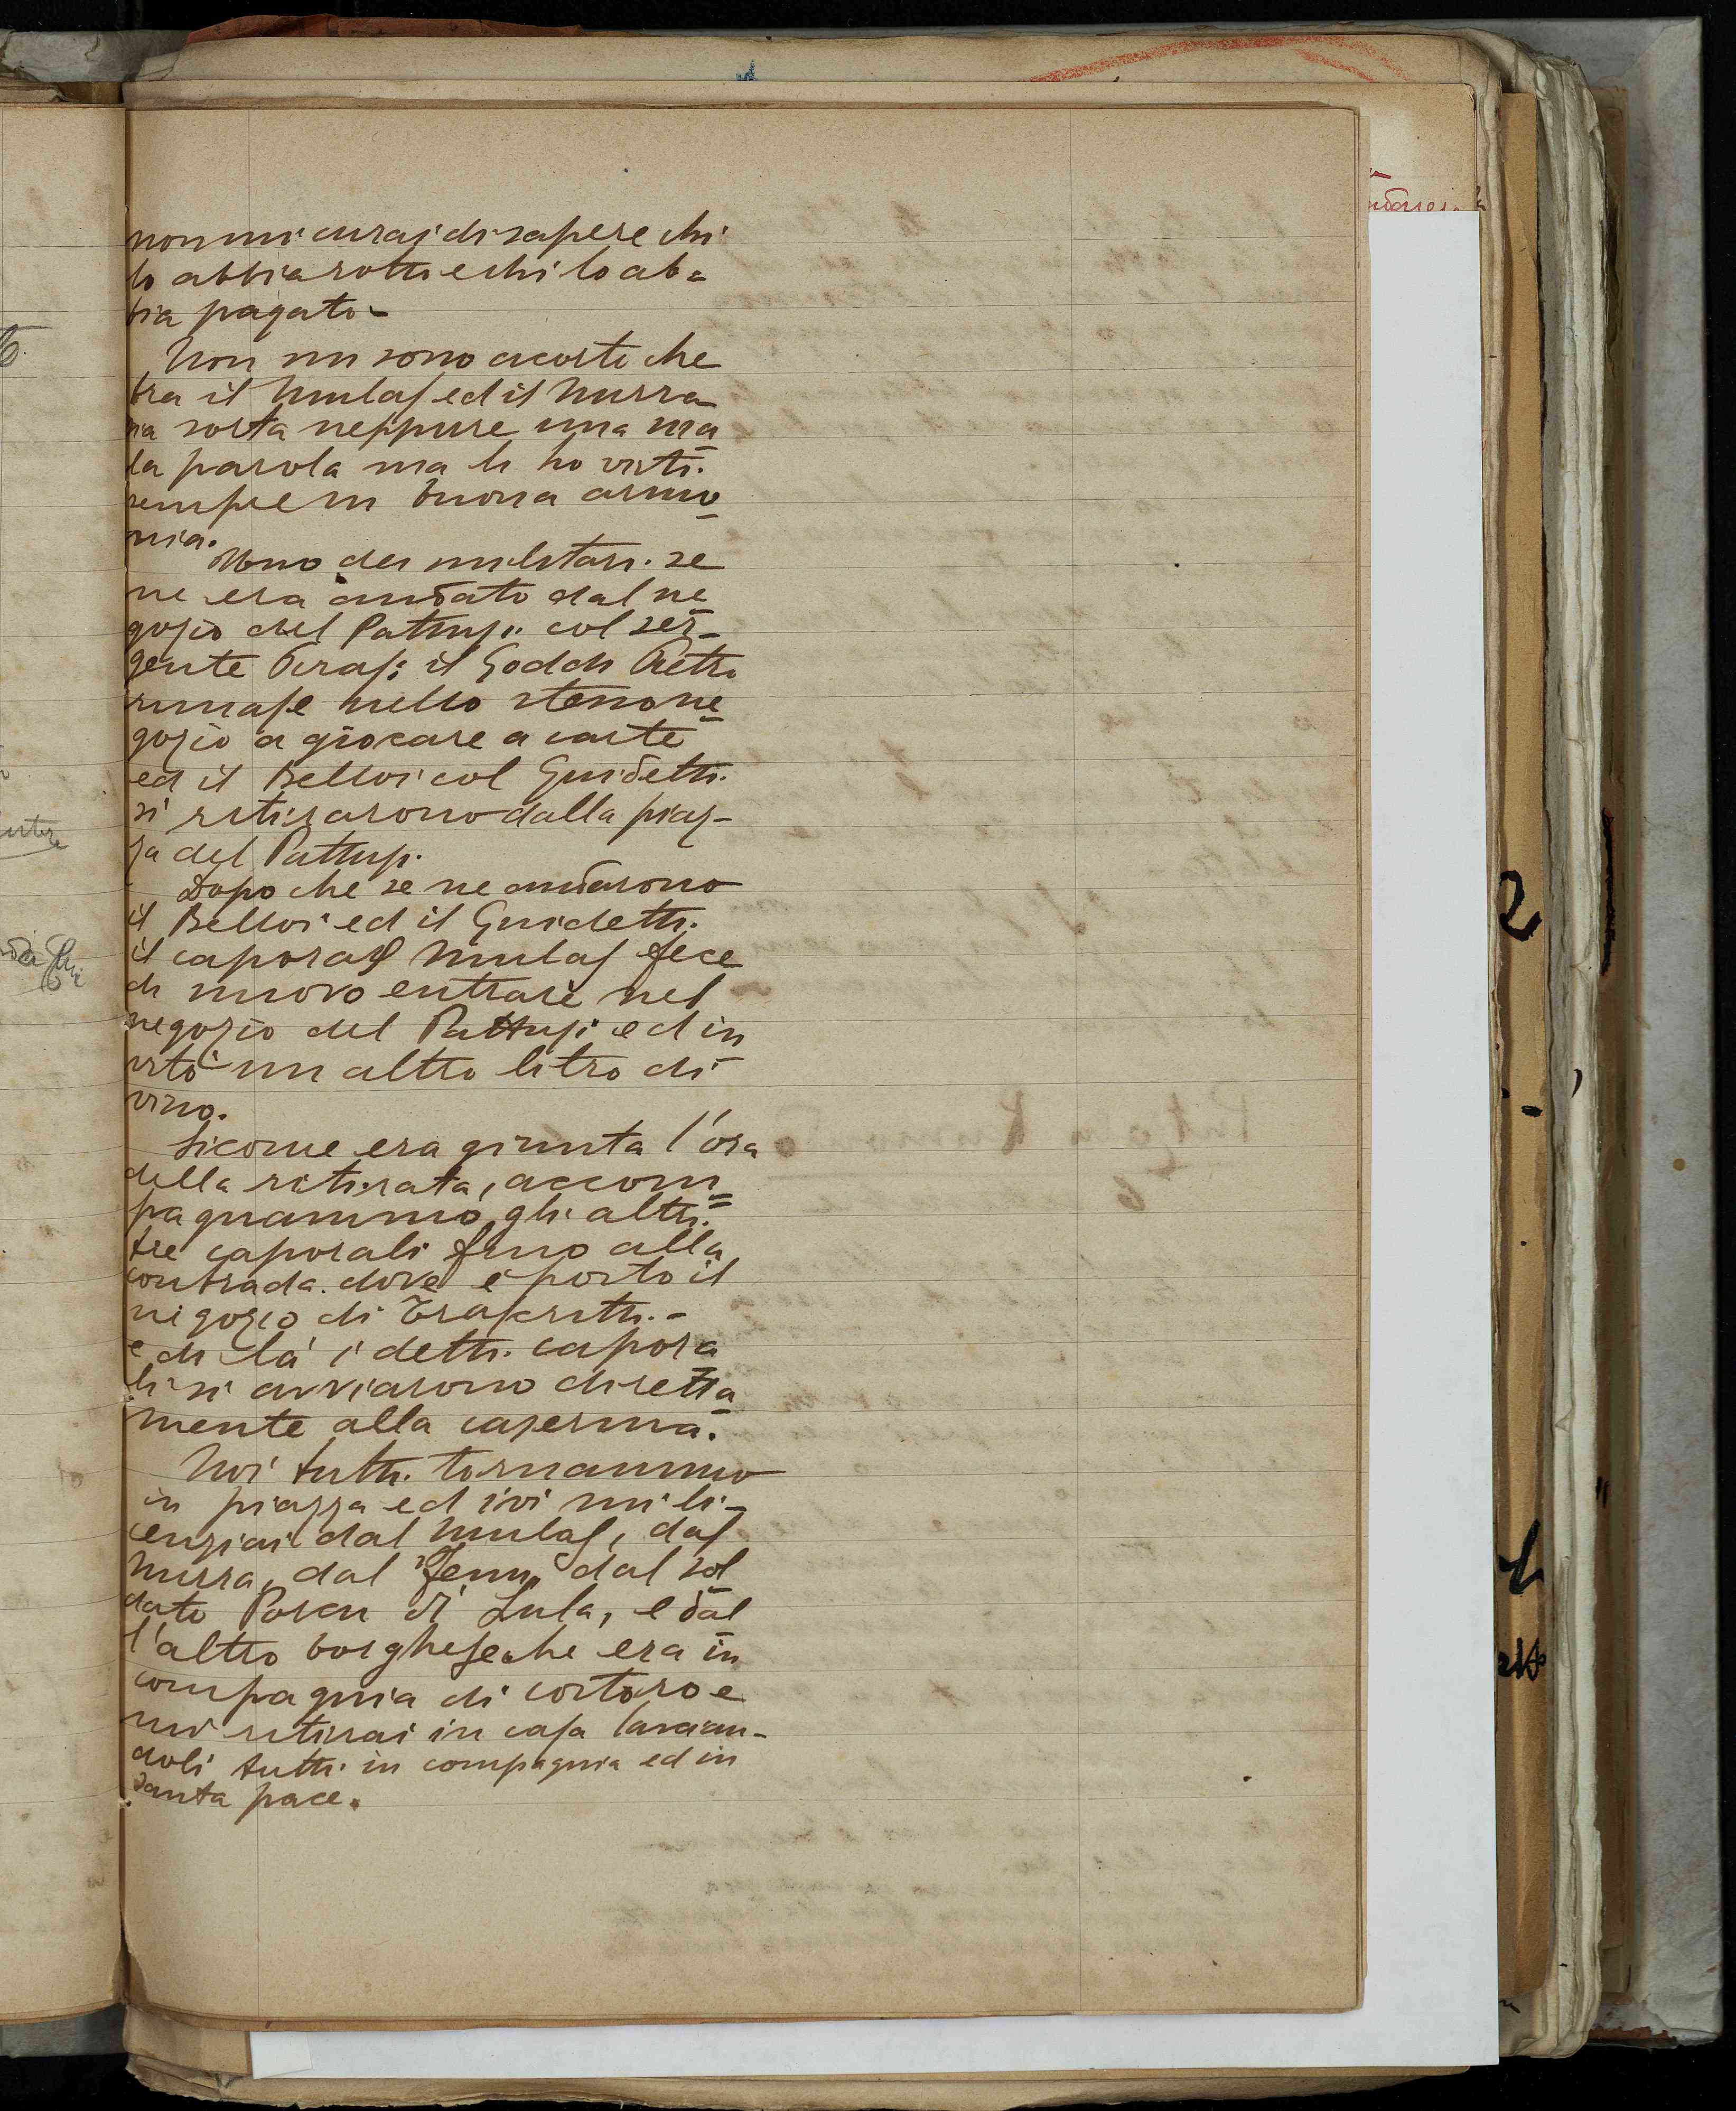 non mi curai di sapere chi
lo abbia rotto e chi lo ab=
bia pagato-
Non mi sono acorto che
tra il Mulas ed il Murra
sia sorta neppure una ma
la parola ma li ho visti
sempre in buona armo
nia.
Uno dei militari se
ne era andato dal ne
gozio del Pattusi col ser-
gente Piras; il Goddi Pietro
rimase nello stesso ne
gozio a giocare a carte
ed il Belloi col Guidetti
si ritirarono dalla piaz-
za del Pattusi.
Dopo che se ne andarono
il Belloi ed il Guidetti
il caporal Mulas fece
di nuovo entrare nel
negozio del Pattusi ed in
vitò un altro litro di
vino.
Sicome era giunta l'ora
della ritirata, accom=
pagnammo gli altri
tre caporali fino alla
contrada dove è posto il
negozio di -
e di là i detti capora
li si avviarono diretta
mente alla caserma.
Noi tutti tornammo
in piazza ed ivi mi li-
cenziai dal Mulas, dal
Murra, dal Zenu, dal sol
dato Porcu di Lula, e dal
l'altro borghese che era in
compagnia di costoro e
mi ritirai in casa lascian-
doli tutti in compagnia ed in
santa pace.